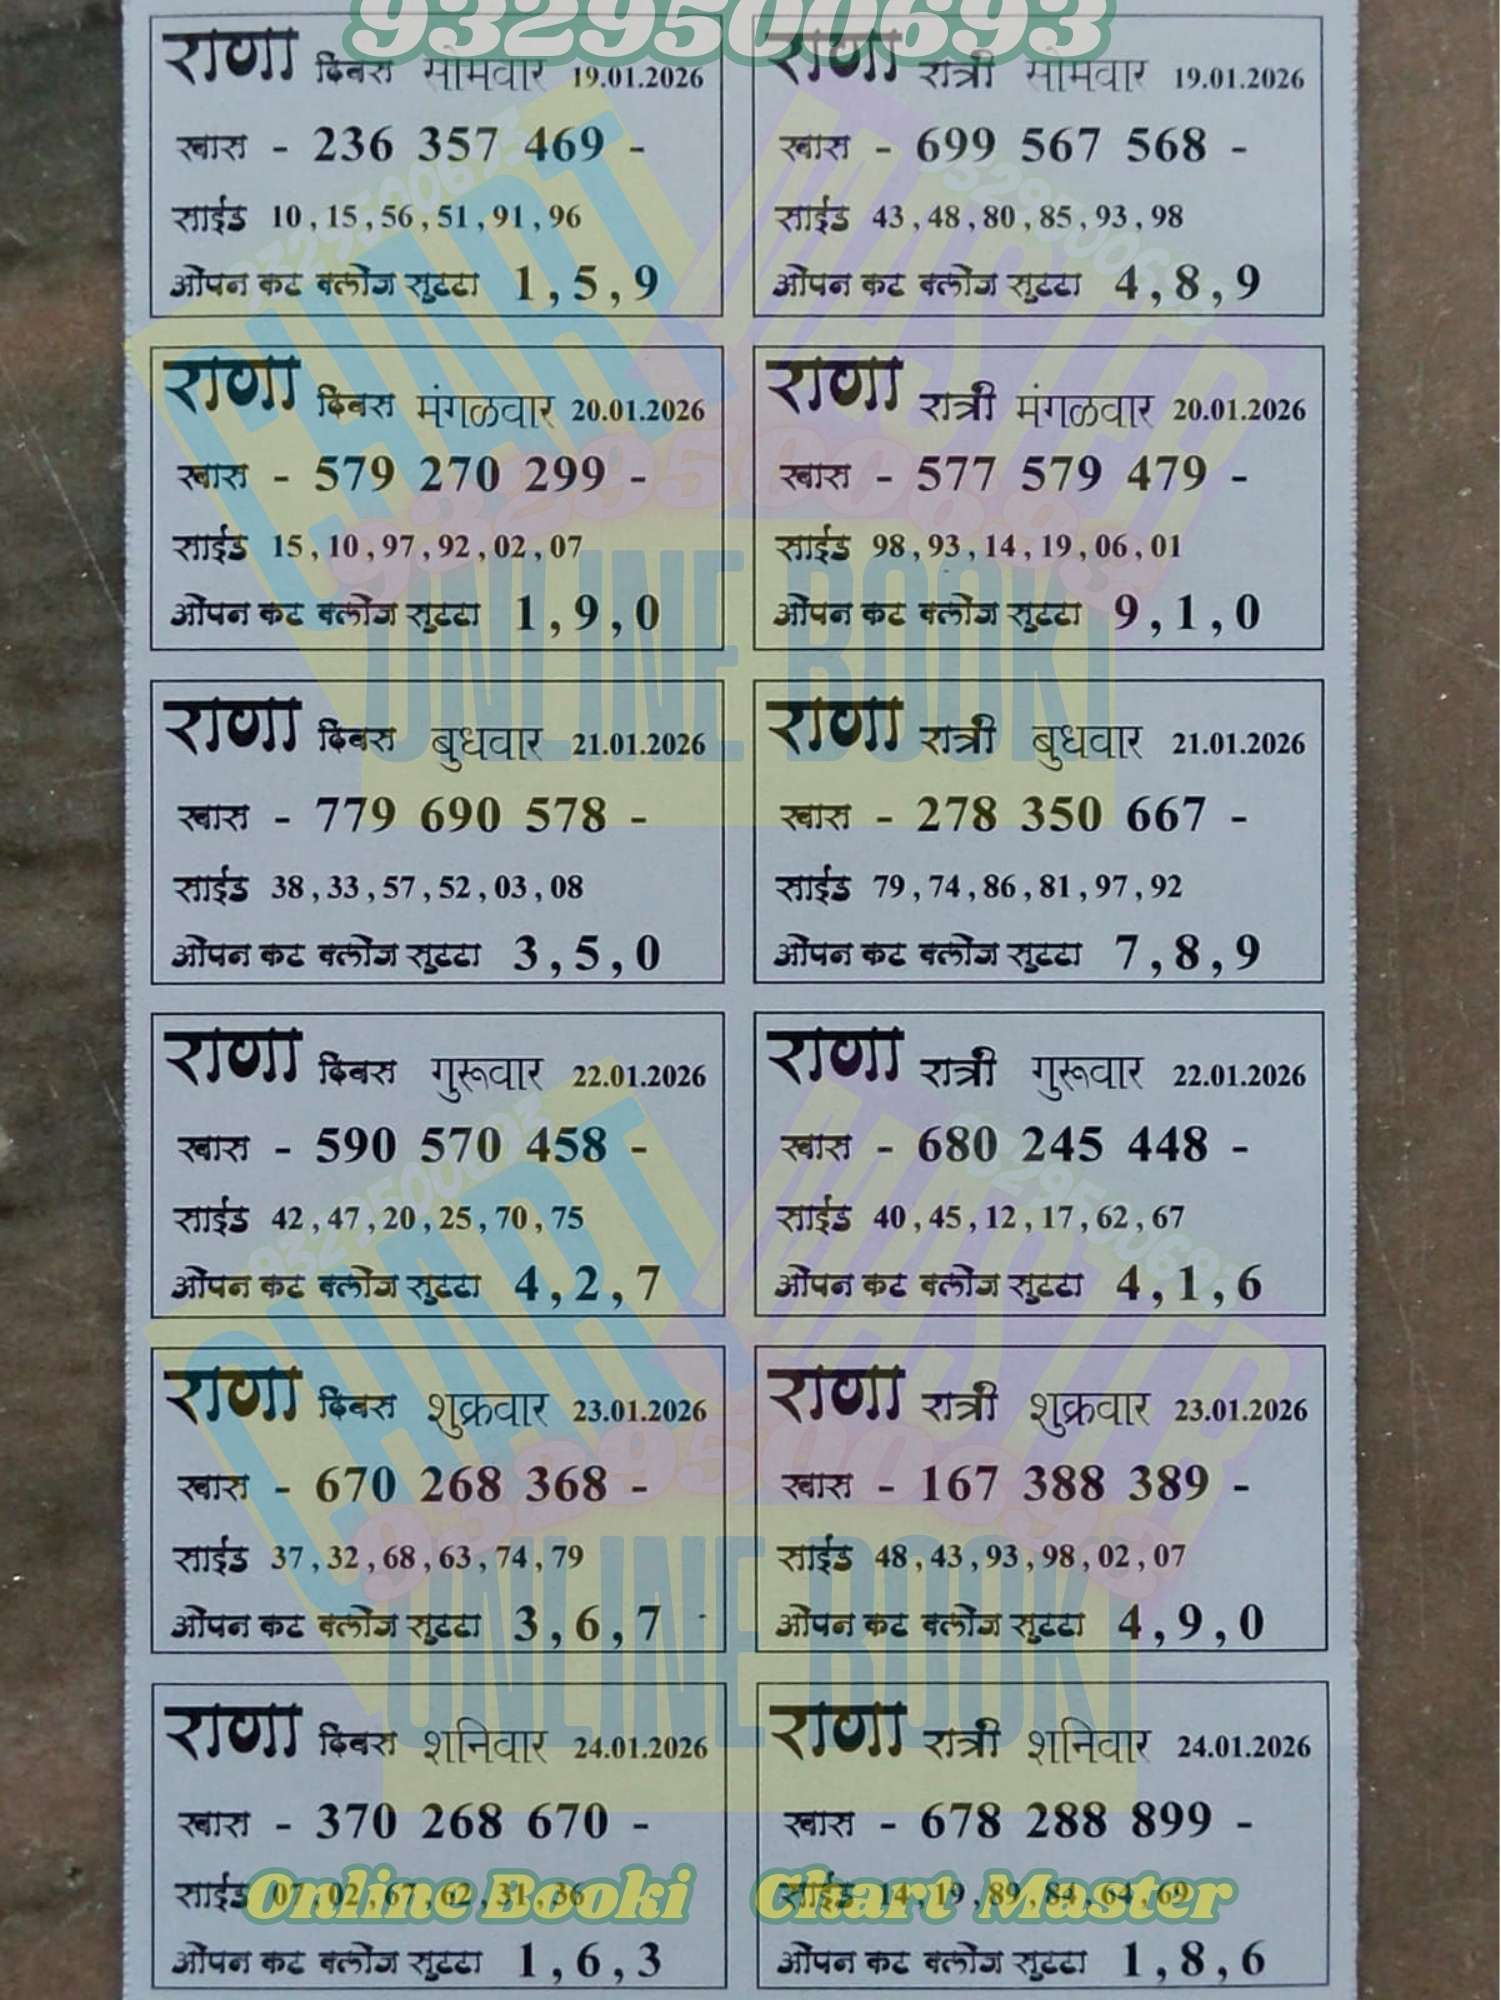 9329500693
राणा दिवस सोमवार 19.01.2026
खास - 236 357 469 -
साईड 10 , 15 , 56 , 51 , 91 , 96
ओपन कट क्लोज सुटटा 1 , 5 , 9
राणा रात्री सोमवार 19.01.2026
खास - 699 567 568 -
साईड 43 , 48 , 80 , 85 , 93 , 98
ओपन कट क्लोज सुटटा 4 , 8 , 9
राणा दिवस मंगळवार 20.01.2026
खास - 579 270 299 -
साईड 15 , 10 , 97 , 92 , 02 , 07
ओपन कट क्लोज सुटटा 1 , 9 , 0
राणा रात्री मंगळवार 20.01.2026
खास - 577 579 479 -
साईड 98 , 93 , 14 , 19 , 06 , 01
ओपन कट क्लोज सुटटा 9 , 1 , 0
राणा दिवस बुधवार 21.01.2026
खास - 779 690 578 -
साईड 38 , 33 , 57 , 52 , 03 , 08
ओपन कट क्लोज सुटटा 3 , 5 , 0
राणा रात्री बुधवार 21.01.2026
खास - 278 350 667 -
साईड 79 , 74 , 86 , 81 , 97 , 92
ओपन कट क्लोज सुटटा 7 , 8 , 9
राणा दिवस गुरूवार 22.01.2026
खास - 590 570 458 -
साईड 42 , 47 , 20 , 25 , 70 , 75
ओपन कट क्लोज सुटटा 4 , 2 , 7
राणा रात्री गुरूवार 22.01.2026
खास - 680 245 448 -
साईड 40 , 45 , 12 , 17 , 62 , 67
ओपन कट क्लोज सुटटा 4 , 1 , 6
राणा दिवस शुक्रवार 23.01.2026
खास - 670 268 368 -
साईड 37 , 32 , 68 , 63 , 74 , 79
ओपन कट क्लोज सुटटा 3 , 6 , 7
राणा रात्री शुक्रवार 23.01.2026
खास - 167 388 389 -
साईड 48 , 43 , 93 , 98 , 02 , 07
ओपन कट क्लोज सुटटा 4 , 9 , 0
राणा दिवस शनिवार 24.01.2026
खास - 370 268 670 -
साईड 07 , 02 , 67 , 62 , 31 , 36
ओपन कट क्लोज सुटटा 1 , 6 , 3
राणा रात्री शनिवार 24.01.2026
खास - 678 288 899 -
साईड 14 , 19 , 89 , 84 , 64 , 69
ओपन कट क्लोज सुटटा 1 , 8 , 6
CHART MASTER
9329500693
9329500693
9329500693
ONLINE BOOKI
CHART MASTER
9329500693
9329500693
9329500693
ONLINE BOOKI
Online Booki Chart Master